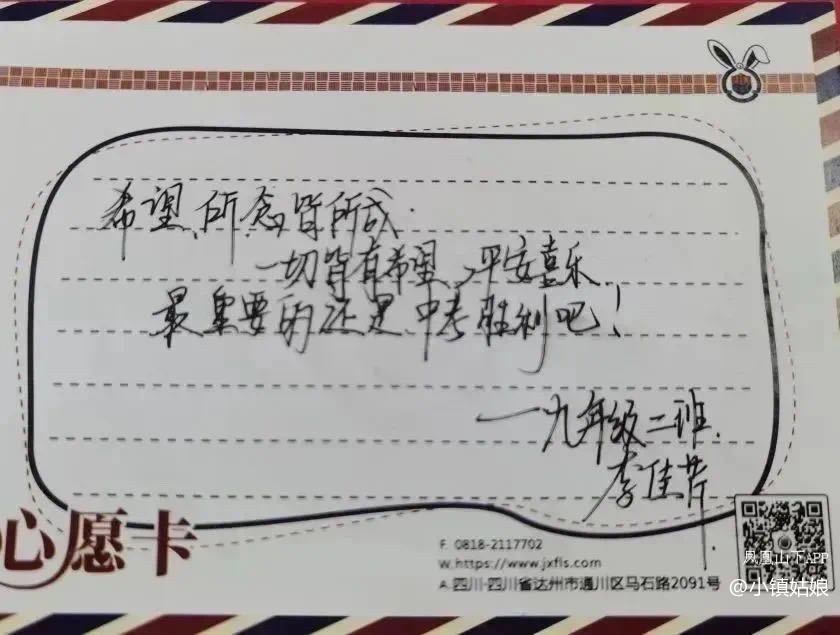 希望、所念皆所成.
一切皆有希望、平安喜乐
最重要的还是中考胜利吧！
一九年级二班.
李佳芹
心愿卡
F. 0818-2117702
W. https://www.jxfls.com
A. 四川-四川省达州市通川区马石路2091号
凤凰山下APP
@小镇姑娘